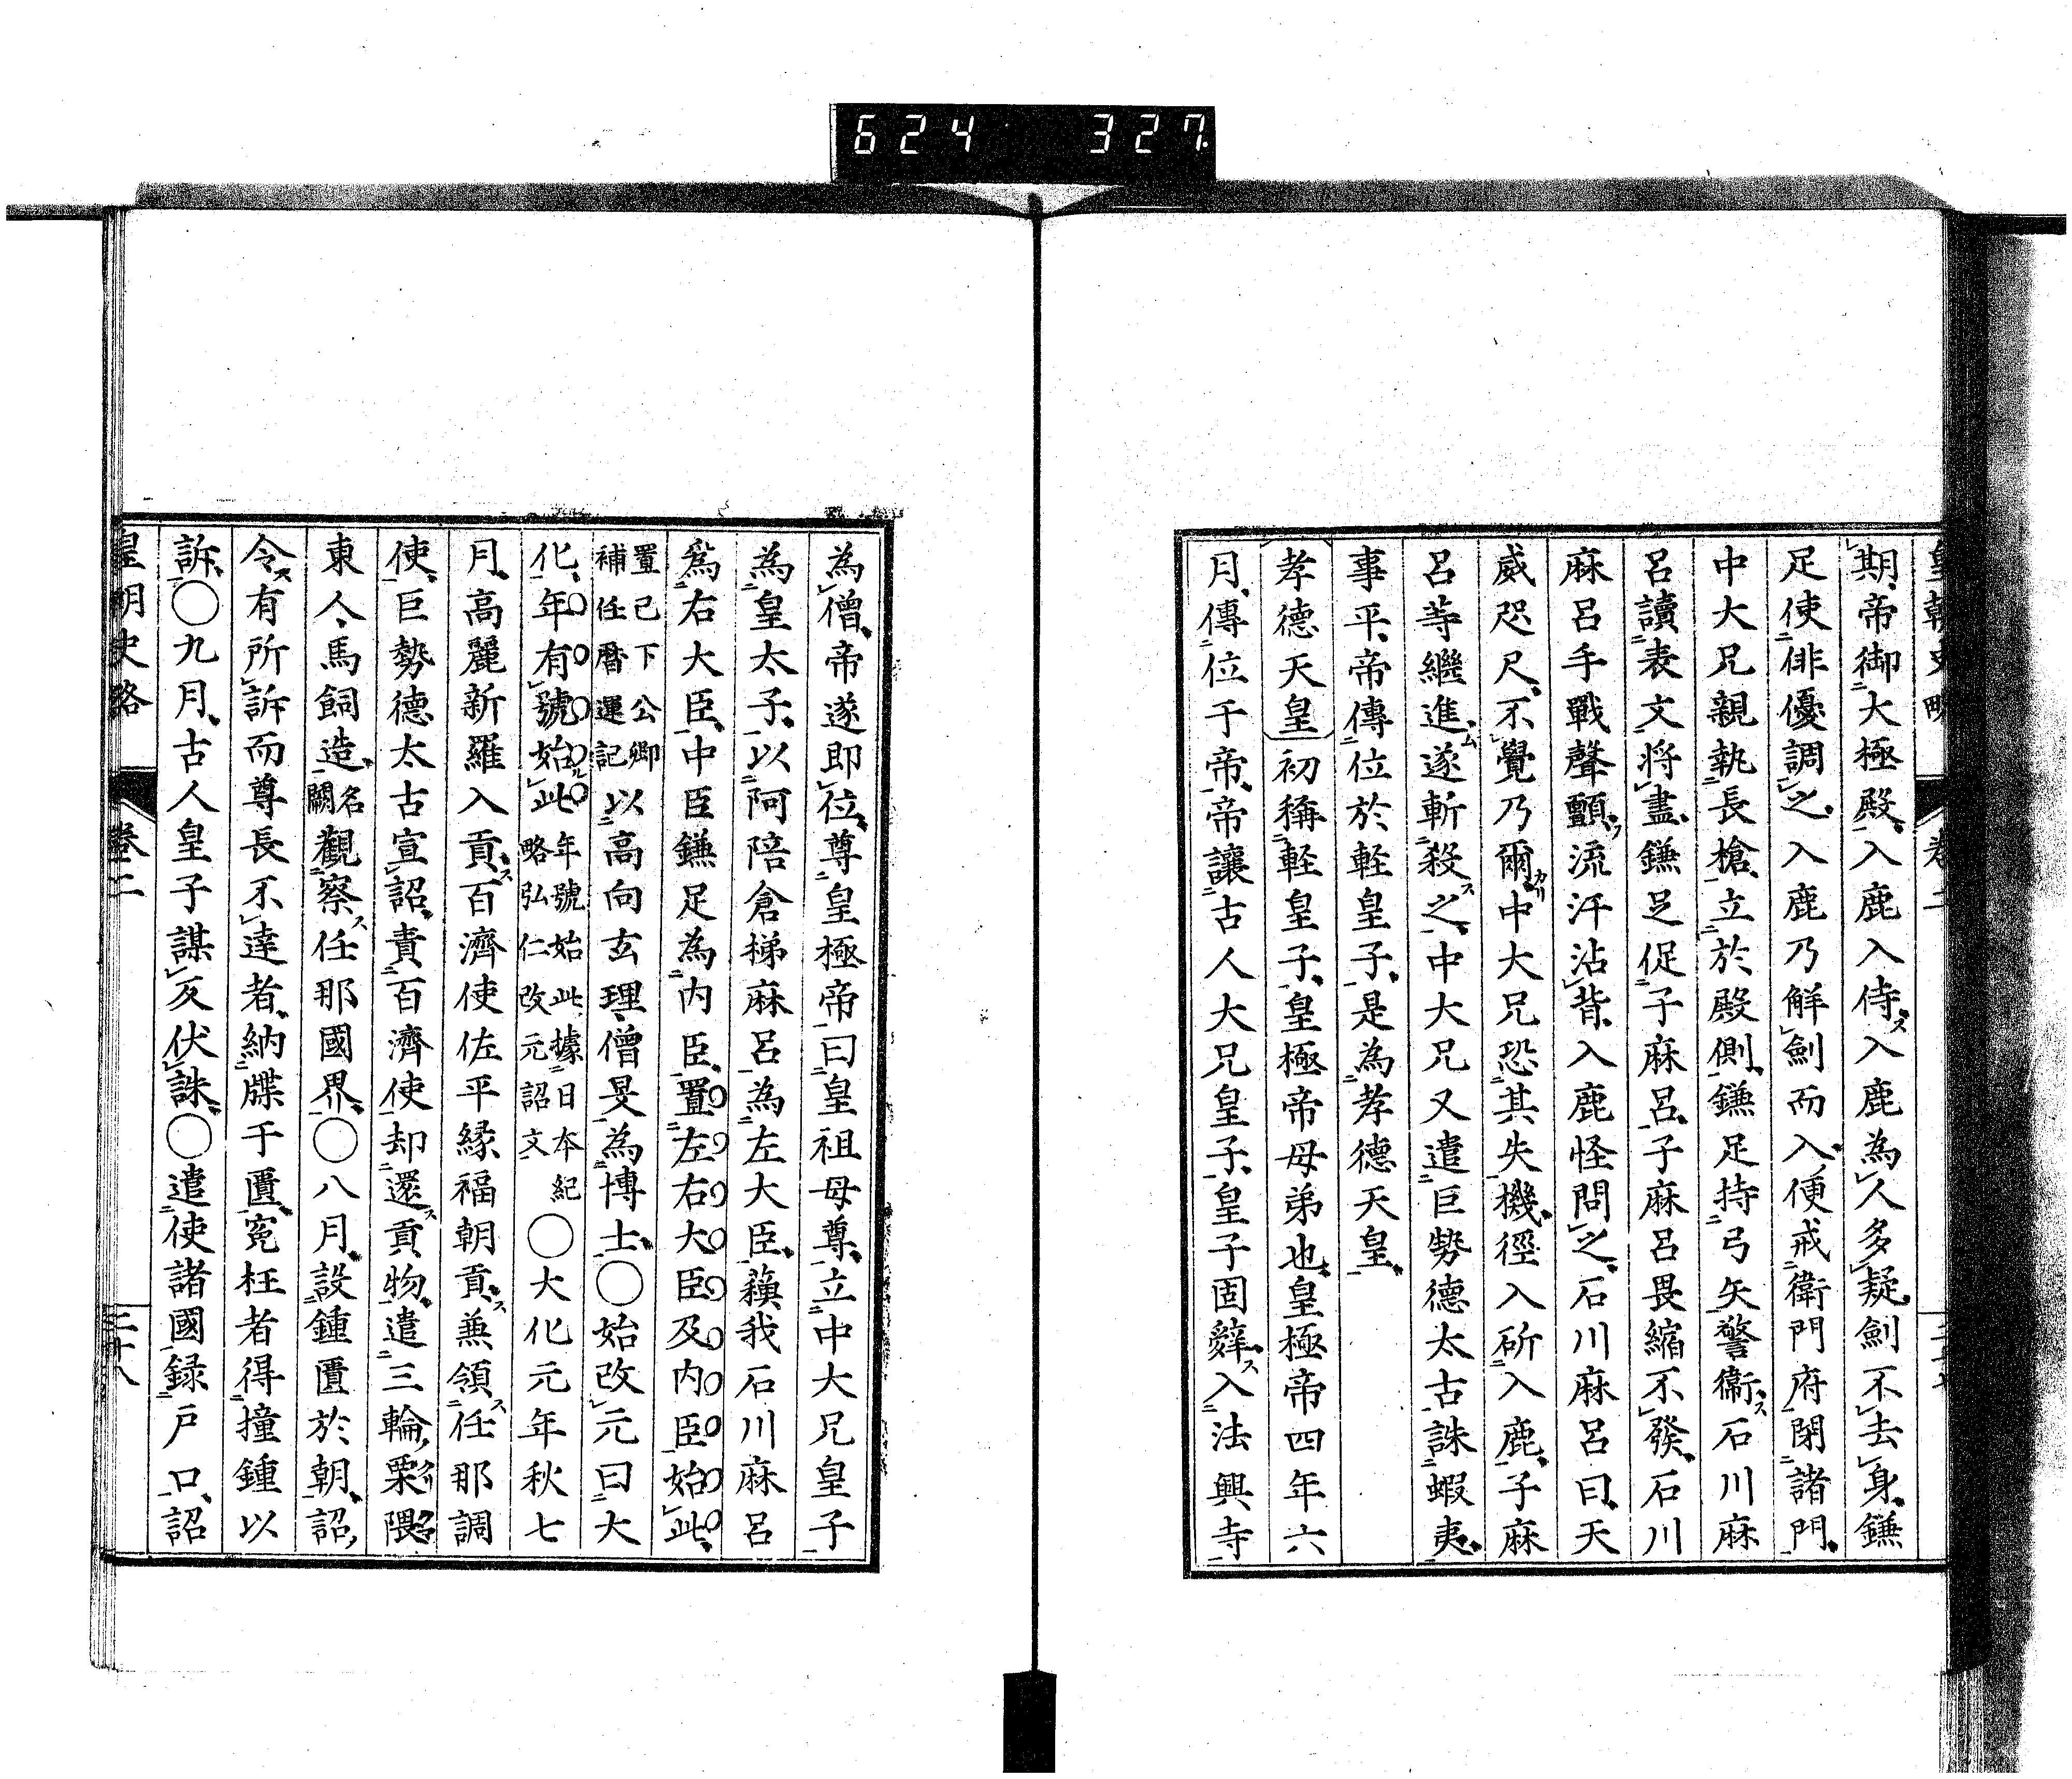 624 327
期帝御大極殿入鹿入侍入鹿為人多疑劍不去身鎌
足使俳優調之入鹿乃解劍而入便戒衛門府閉諸門
中大兄親執長槍立於殿側鎌足持弓矢警衞石川麻
呂讀表文將盡鎌足促子麻呂子麻呂畏縮不發石川
麻呂手戰聲顫流汗沾背入鹿怪問之石川麻呂曰天
威咫尺不覺乃爾中大兄恐其失機徑入斫入鹿子麻
呂等繼進遂斬殺之中大兄又遣巨勢德太古誅蝦夷
事平帝傳位於軽皇子是為孝德天皇
孝德天皇初稱軽皇子皇極帝母弟也皇極帝四年六
月傳位于帝帝讓古人大兄皇子皇子固辭入法興寺
為僧帝遂即位尊皇極帝曰皇祖母尊立中大兄皇子
為皇太子以阿陪倉梯麻呂為左大臣蘓我石川麻呂
爲右大臣中臣鎌足為内臣置左右大臣及内臣始此
置已下公卿補任暦運記以高向玄理僧旻為博士〇始改元曰大
化年有號始此年號始此據日本紀略弘仁改元詔文〇大化元年秋七
月高麗新羅入貢百濟使佐平縁福朝貢兼領任那調
使巨勢德太古宣詔責百濟使却還貢物遣三輪栗隈
東人馬飼造名闕觀察任那國界〇八月設鍾匱於朝詔
令有所訴而尊長不達者納牒于匱寃枉者得撞鍾以
訴〇九月古人皇子謀反伏誅〇遣使諸國録戸口詔
皇朝史略 卷二 二十八